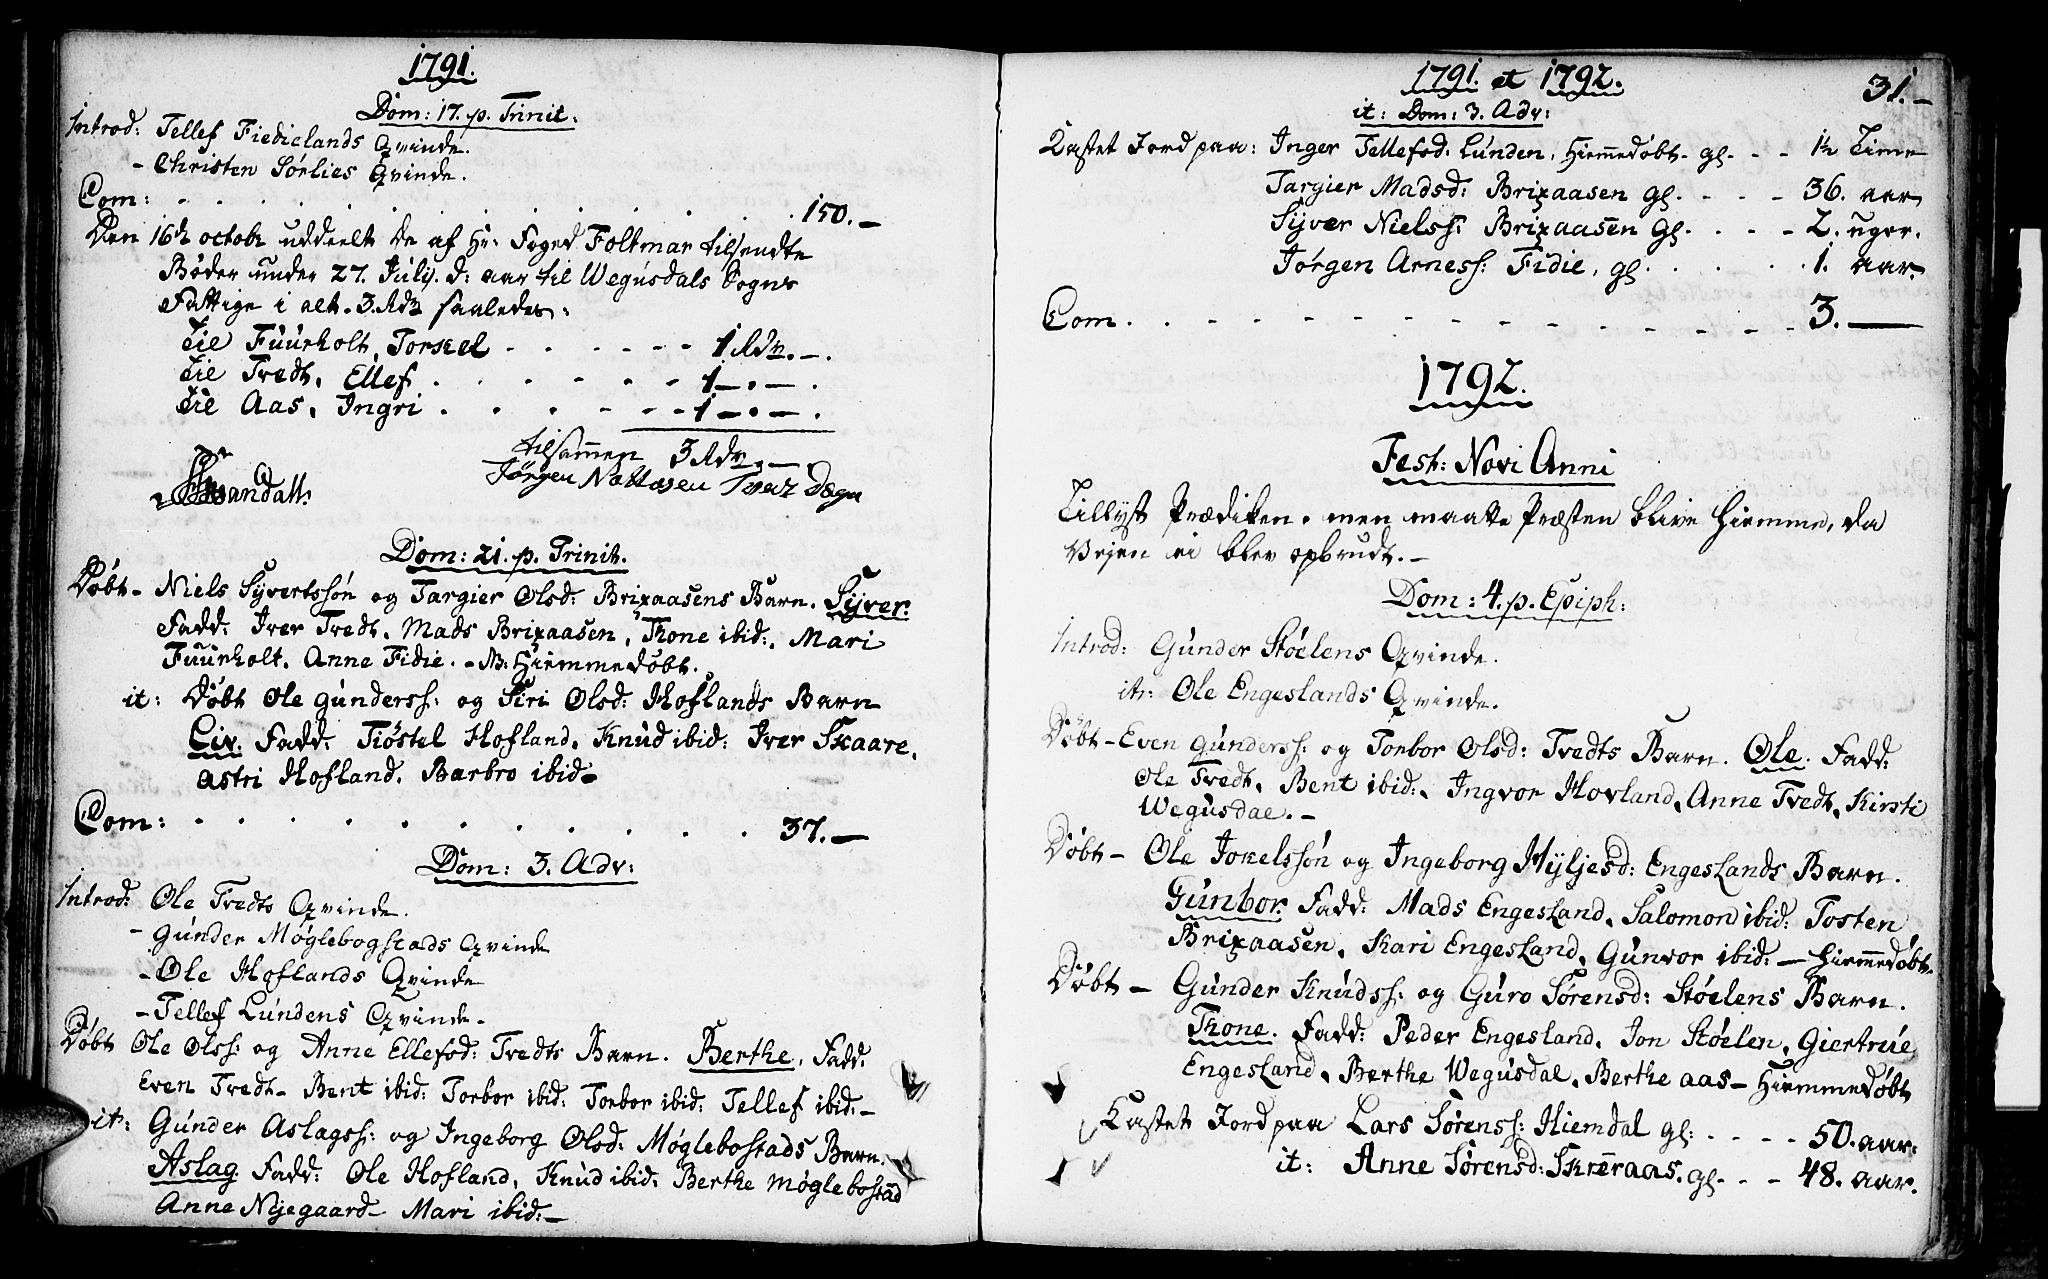 1791.
Dom: 17. p. Trinit:
Introd: Tellef Fiedielands Qvinde.
- Christen Sørlies Qvinde.
Com: . . . . . . . . . . 150. -
Den 16de octobr uddeelt de af Hr. Foged Foltmar tilsendte
Bøder under 27. Julij. d: aar til Wegusdals Sogns
Fattige i alt. 3. Rdr saaledes:
Til Fuurholt, Torkel . . . . . . 1 Rdr. -.
Til Tredt, Ellef . . . . . . 1 -. -.
Til Aas, Ingri . . . . . . 1 -. -.
tilsammen 3 Rdr. -.
Jørgen Nattesen Tvez Degn
Dom: 21. p. Trinit.
Døbt - Niels Syvertssøn og Targier Olsd: Brixaasens Barn. Syver.
Fadd: Iver Tredt, Mads Brixaasen, Thone ibid:, Mari
Fuurholt. Anne Fidie. - NB: Hiemmedøbt.
it: Døbt Ole gunderss: og Siri Olsd: Hoflands Barn
Liv. Fadd: Tiøstel Hofland. Knud ibid: Iver Skaare.
astri Hofland. Barbro ibid -
Com: . . . . . . . . . . 37. -
Dom: 3. Adv:
Introd: Ole Tredts Qvinde.
- Gunder Møglebogstads Qvinde
- Ole Hoflands Qvinde
- Tellef Lundens Qvinde -
Døbt Ole Olss: og Anne Ellefsd: Tredts Barn. Berthe, Fadd:
Even Tredt - Bent ibid: Torbor ibid: Torbor ibid: Tellef ibid: -
it: Gunder Aslagss: og Ingeborg Olsd: Møglebostads Barn.
Aslag Fadd: Ole Hofland, Knud ibid. Berthe Møglebostad
Anne Nyegaard - Mari ibid: -
1791 et 1792. 31. -
it: Dom: 3. Adv:
Kastet Jord paa: Inger Tellefsd: Lunden, Hiemmedøbt - gl. - - 1½ Time
Targier Madsd: Brixaasen gl. . . . - 36. aar
Syver Nielss: Brixaasen Gl. . . . - 2. uger.
Jørgen Arness: Fidie, gl. . . . . . 1. aar.
Com. . . - - - - - - - - - 3. -
1792.
Fest: Novi Anni
Tillyst Prædiken. men maatte Præsten blive hiemme, da
Vejen ei blev opbrudt. -
Dom: 4. p. Epiph:
Introd: Gunder Støelens Qvinde.
it: Ole Engeslands Qvinde.
Døbt - Even gunderss: og Torbor Olsd: Tvedts Barn. Ole. Fadd:
Ole Tvedt. Bent ibid:, Ingvor Hovland, Anne Tvedt, Kirsti
Wegusdae. -
Døbt - Ole Jokelssøn og Ingeborg Hyljesd: Engeslands Barn.
Gunbor. Fadd: Mads Engesland. Salomon ibid: Tosten
Brixaasen. Kari Engesland, Gunvor ibid: - Hiemmedøbt.
Døbt - Gunder Knudss: og Guro Sørensd: Støelens Barn.
Thone. Fadd: Peder Engesland, Jon Støelen, Giertrue
Engesland, Berthe Wegusdal, Berthe aas - Hiemmedøbt
Kastet Jord paa Lars Sørenss: Hiemdal gl: . . . - - 50. aar.
it: Anne Sørensd: Skreraas. gl. - - - 48. aar.